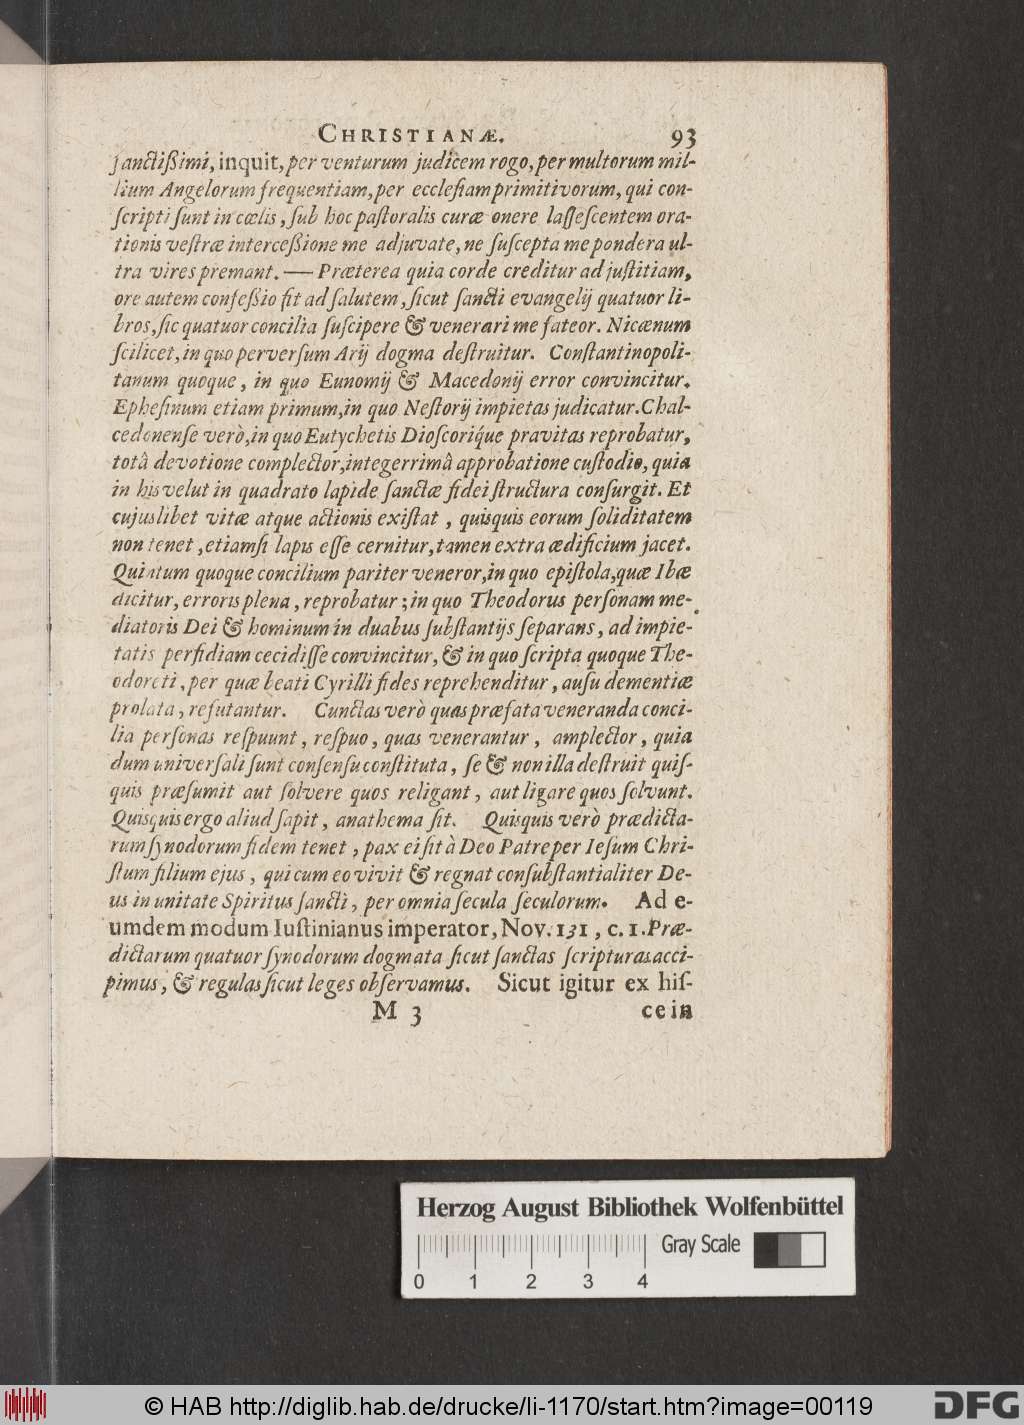 CHRISTIANÆ. 93
ſanctißimi, inquit, per venturum judicem rogo, per multorum mil-
lium Angelorum frequentiam, per eccleſiam primitivorum, qui con-
ſcripti ſunt in cœlis, ſub hoc paſtoralis curæ onere laſſeſcentem ora-
tionis veſtræ interceßione me adjuvate, ne ſuſcepta me pondera ul-
tra vires premant. — Præterea quia corde creditur ad juſtitiam,
ore autem confeßio fit ad ſalutem, ſicut ſancti evangelij quatuor li-
bros, ſic quatuor concilia ſuſcipere & venerari me fateor. Nicænum
ſcilicet, in quo perverſum Arij dogma deſtruitur. Conſtantinopoli-
tanum quoque, in quo Eunomij & Macedonij error convincitur.
Epheſinum etiam primum, in quo Neſtorij impietas judicatur. Chal-
cedonenſe verò, in quo Eutychetis Dioſcoriq́ue pravitas reprobatur,
totâ devotione complector, integerrimâ approbatione cuſtodio, quia
in his velut in quadrato lapide ſanctæ fidei ſtructura conſurgit. Et
cujuslibet vitæ atque actionis exiſtat, quisquis eorum ſoliditatem
non tenet, etiamſi lapis eſſe cernitur, tamen extra ædificium jacet.
Quintum quoque concilium pariter veneror, in quo epiſtola, quæ Ibæ
dicitur, erroris plena, reprobatur; in quo Theodorus perſonam me-
diatoris Dei & hominum in duabus ſubſtantijs ſeparans, ad impie-
tatis perfidiam cecidiſſe convincitur, & in quo ſcripta quoque The-
odoreti, per quæ beati Cyrilli fides reprehenditur, auſu dementiæ
prolata, refutantur. Cunctas verò quas præfata veneranda conci-
lia perſonas reſpuunt, reſpuo, quas venerantur, amplector, quia
dum univerſali ſunt conſenſu conſtituta, ſe & non illa deſtruit quiſ-
quis præſumit aut ſolvere quos religant, aut ligare quos ſolvunt.
Quisquis ergo aliud ſapit, anathema ſit. Quisquis verò prædicta-
rum ſynodorum fidem tenet, pax ei ſit à Deo Patre per Ieſum Chri-
ſtum filium ejus, qui cum eo vivit & regnat conſubſtantialiter De-
us in unitate Spiritus ſancti, per omnia ſecula ſeculorum. Ad e-
umdem modum Iuſtinianus imperator, Nov. 131, c. 1. Præ-
dictarum quatuor ſynodorum dogmata ſicut ſanctas ſcripturas acci-
pimus, & regulas ſicut leges obſervamus. Sicut igitur ex hiſ-
M 3 ce in
Herzog August Bibliothek Wolfenbüttel
Gray Scale
0 1 2 3 4
© HAB http://diglib.hab.de/drucke/li-1170/start.htm?image=00119
DFG